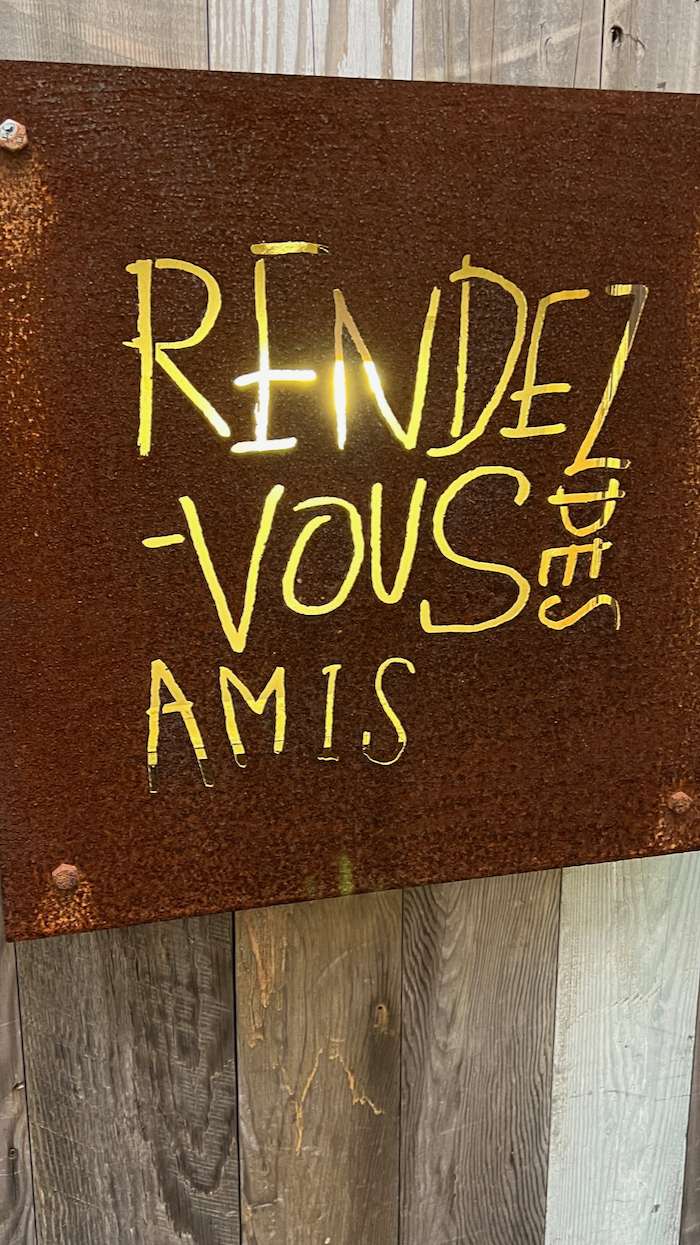 RENDEZ
-VOUS DES
AMIS